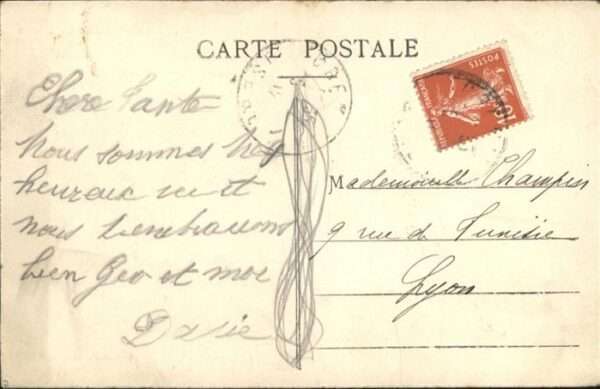 CARTE POSTALE
Chere Tante
Nous sommes très
heureux ici et
nous t'embrassons
bien Geo et moi
Mademoiselle Champin
9 rue de Tunisie
Lyon
POSTES